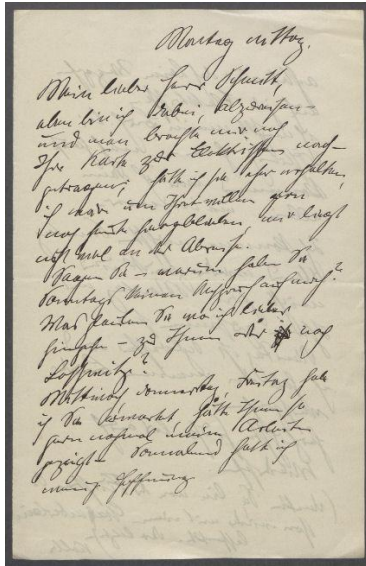 Montag Mittag.
Mein lieber Herr Schmitt,
eben bin ich dabei, abzureisen –
und man brachte mir noch
Ihre Karte zur Elektrischen nach-
getragen; hätte ich sie eher erhalten,
ich wäre um Ihretwillen gern
noch heute hiergeblieben, mir liegt
nicht viel an der Abreise.
Sagen Sie – warum haben Sie
Sonntags keinen
Was glauben Sie wo ich lieber
hingehe – zu Ihnen oder nach
Loschwitz?
Mittwoch, Donnerstag, Freitag habe
ich Sie erwartet, hätte Ihnen so
gern nochmal meine Arbeiten
gezeigt – Sonnabend hatte ich
wenig Hoffnung